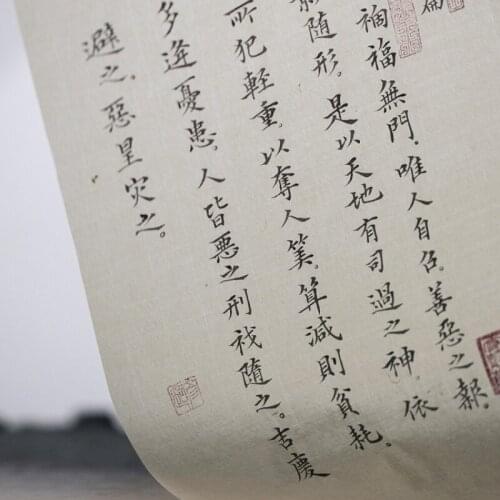 篇
禍福無門，唯人自召。善惡之報。
隨形。是以天地有司過之神，依
所犯輕重，以奪人筭。算減則貧耗。
多逢憂患，人皆惡之，刑禍隨之。吉慶
避之，惡星灾之。